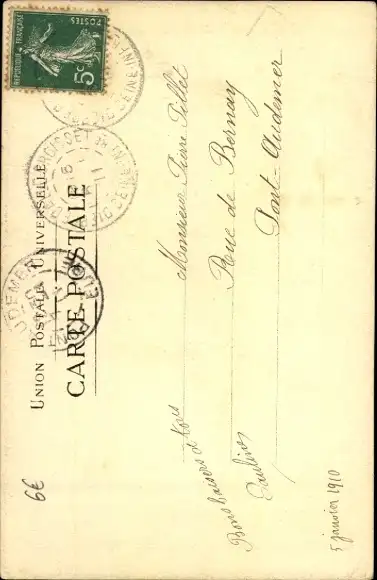 REPUBLIQUE FRANÇAISE
5c
UNION POSTALE UNIVERSELLE
CARTE POSTALE
Monsieur Pierre Pillet
Rue de Bernay
Pont-Audemer
Bons baisers à tous
Pauline
5 janvier 1910
6€